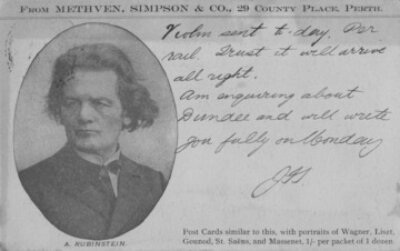 FROM METHVEN, SIMPSON & CO., 29 COUNTY PLACE, PERTH.
Violin sent to-day. Per
rail. Trust it will arrive
all right.
Am enquiring about
Dundee and will write
you fully on Monday
A. RUBINSTEIN.
Post Cards similar to this, with portraits of Wagner, Liszt,
Gounod, St. Saëns, and Massenet, 1/- per packet of 1 dozen